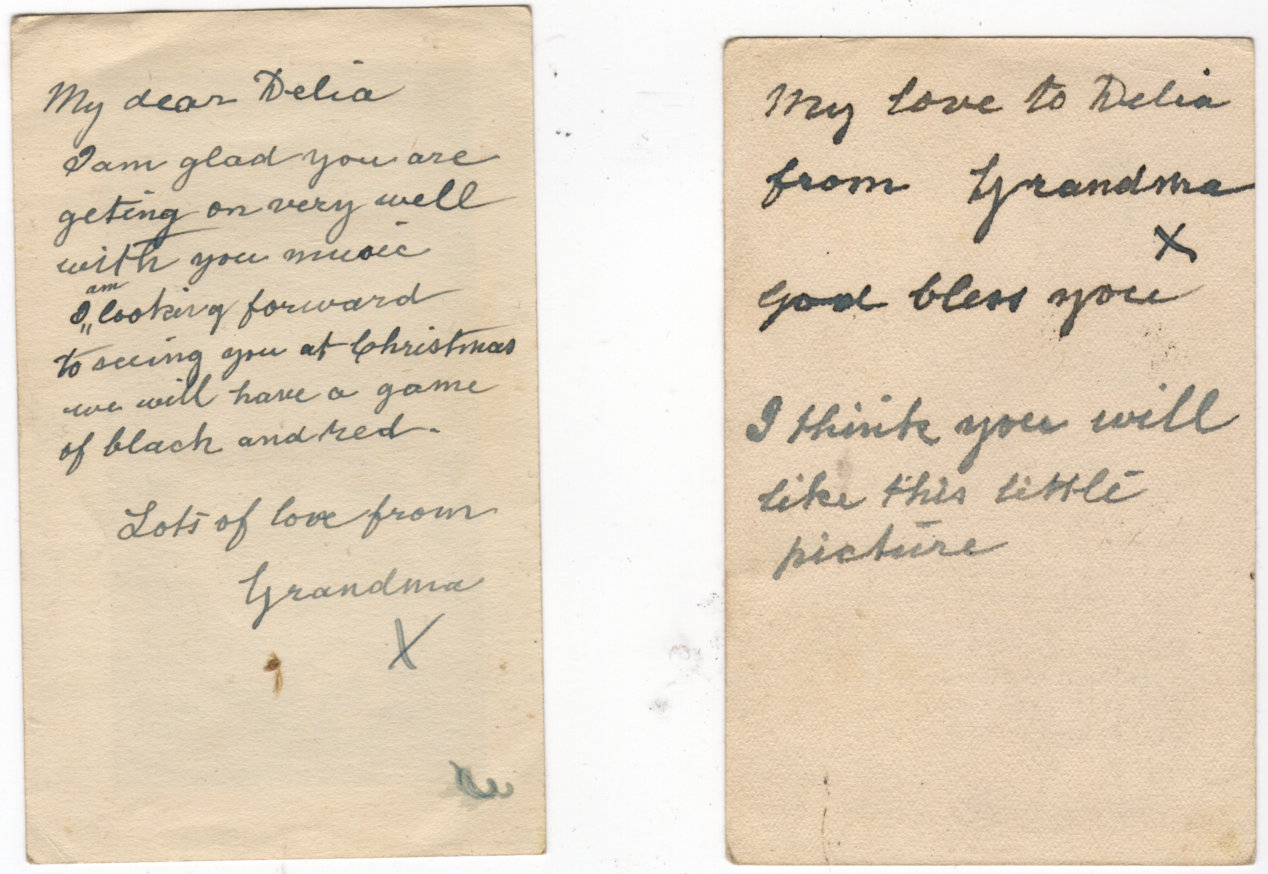 My dear Delia
I am glad you are
geting on very well
with you music
I am looking forward
to seeing you at Christmas
we will have a game
of black and red.
Lots of love from
Grandma
X
My love to Delia
from Grandma
X
God bless you
I think you will
like this little
picture